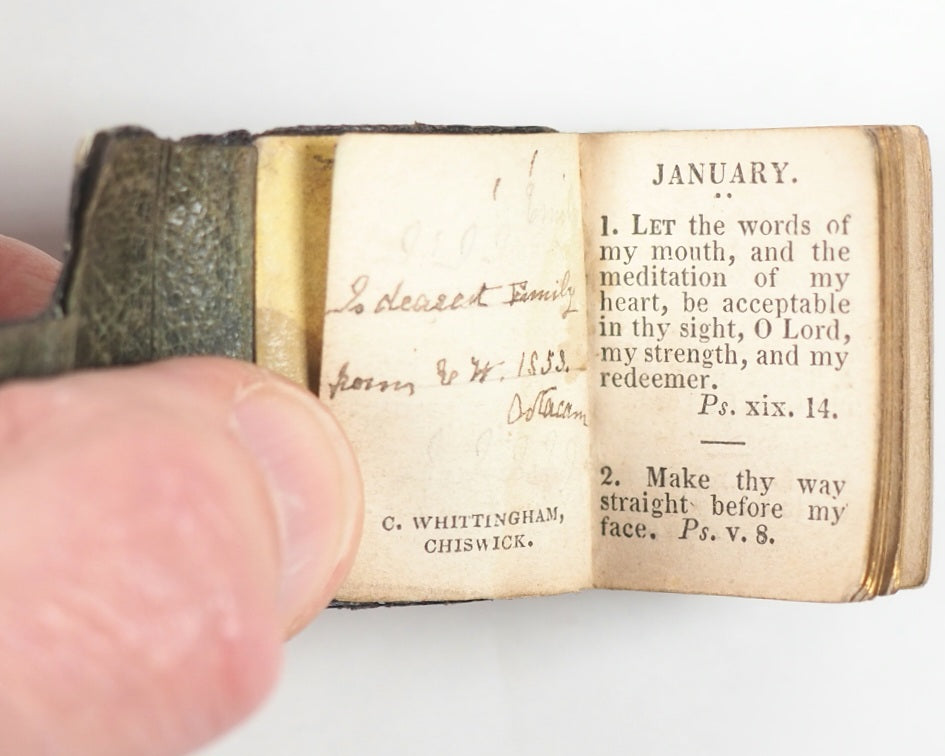 To dearest Emily
from E W. 1853.
C. WHITTINGHAM,
CHISWICK.
JANUARY.
1. LET the words of
my mouth, and the
meditation of my
heart, be acceptable
in thy sight, O Lord,
my strength, and my
redeemer.
Ps. xix. 14.
2. Make thy way
straight before my
face. Ps. v. 8.